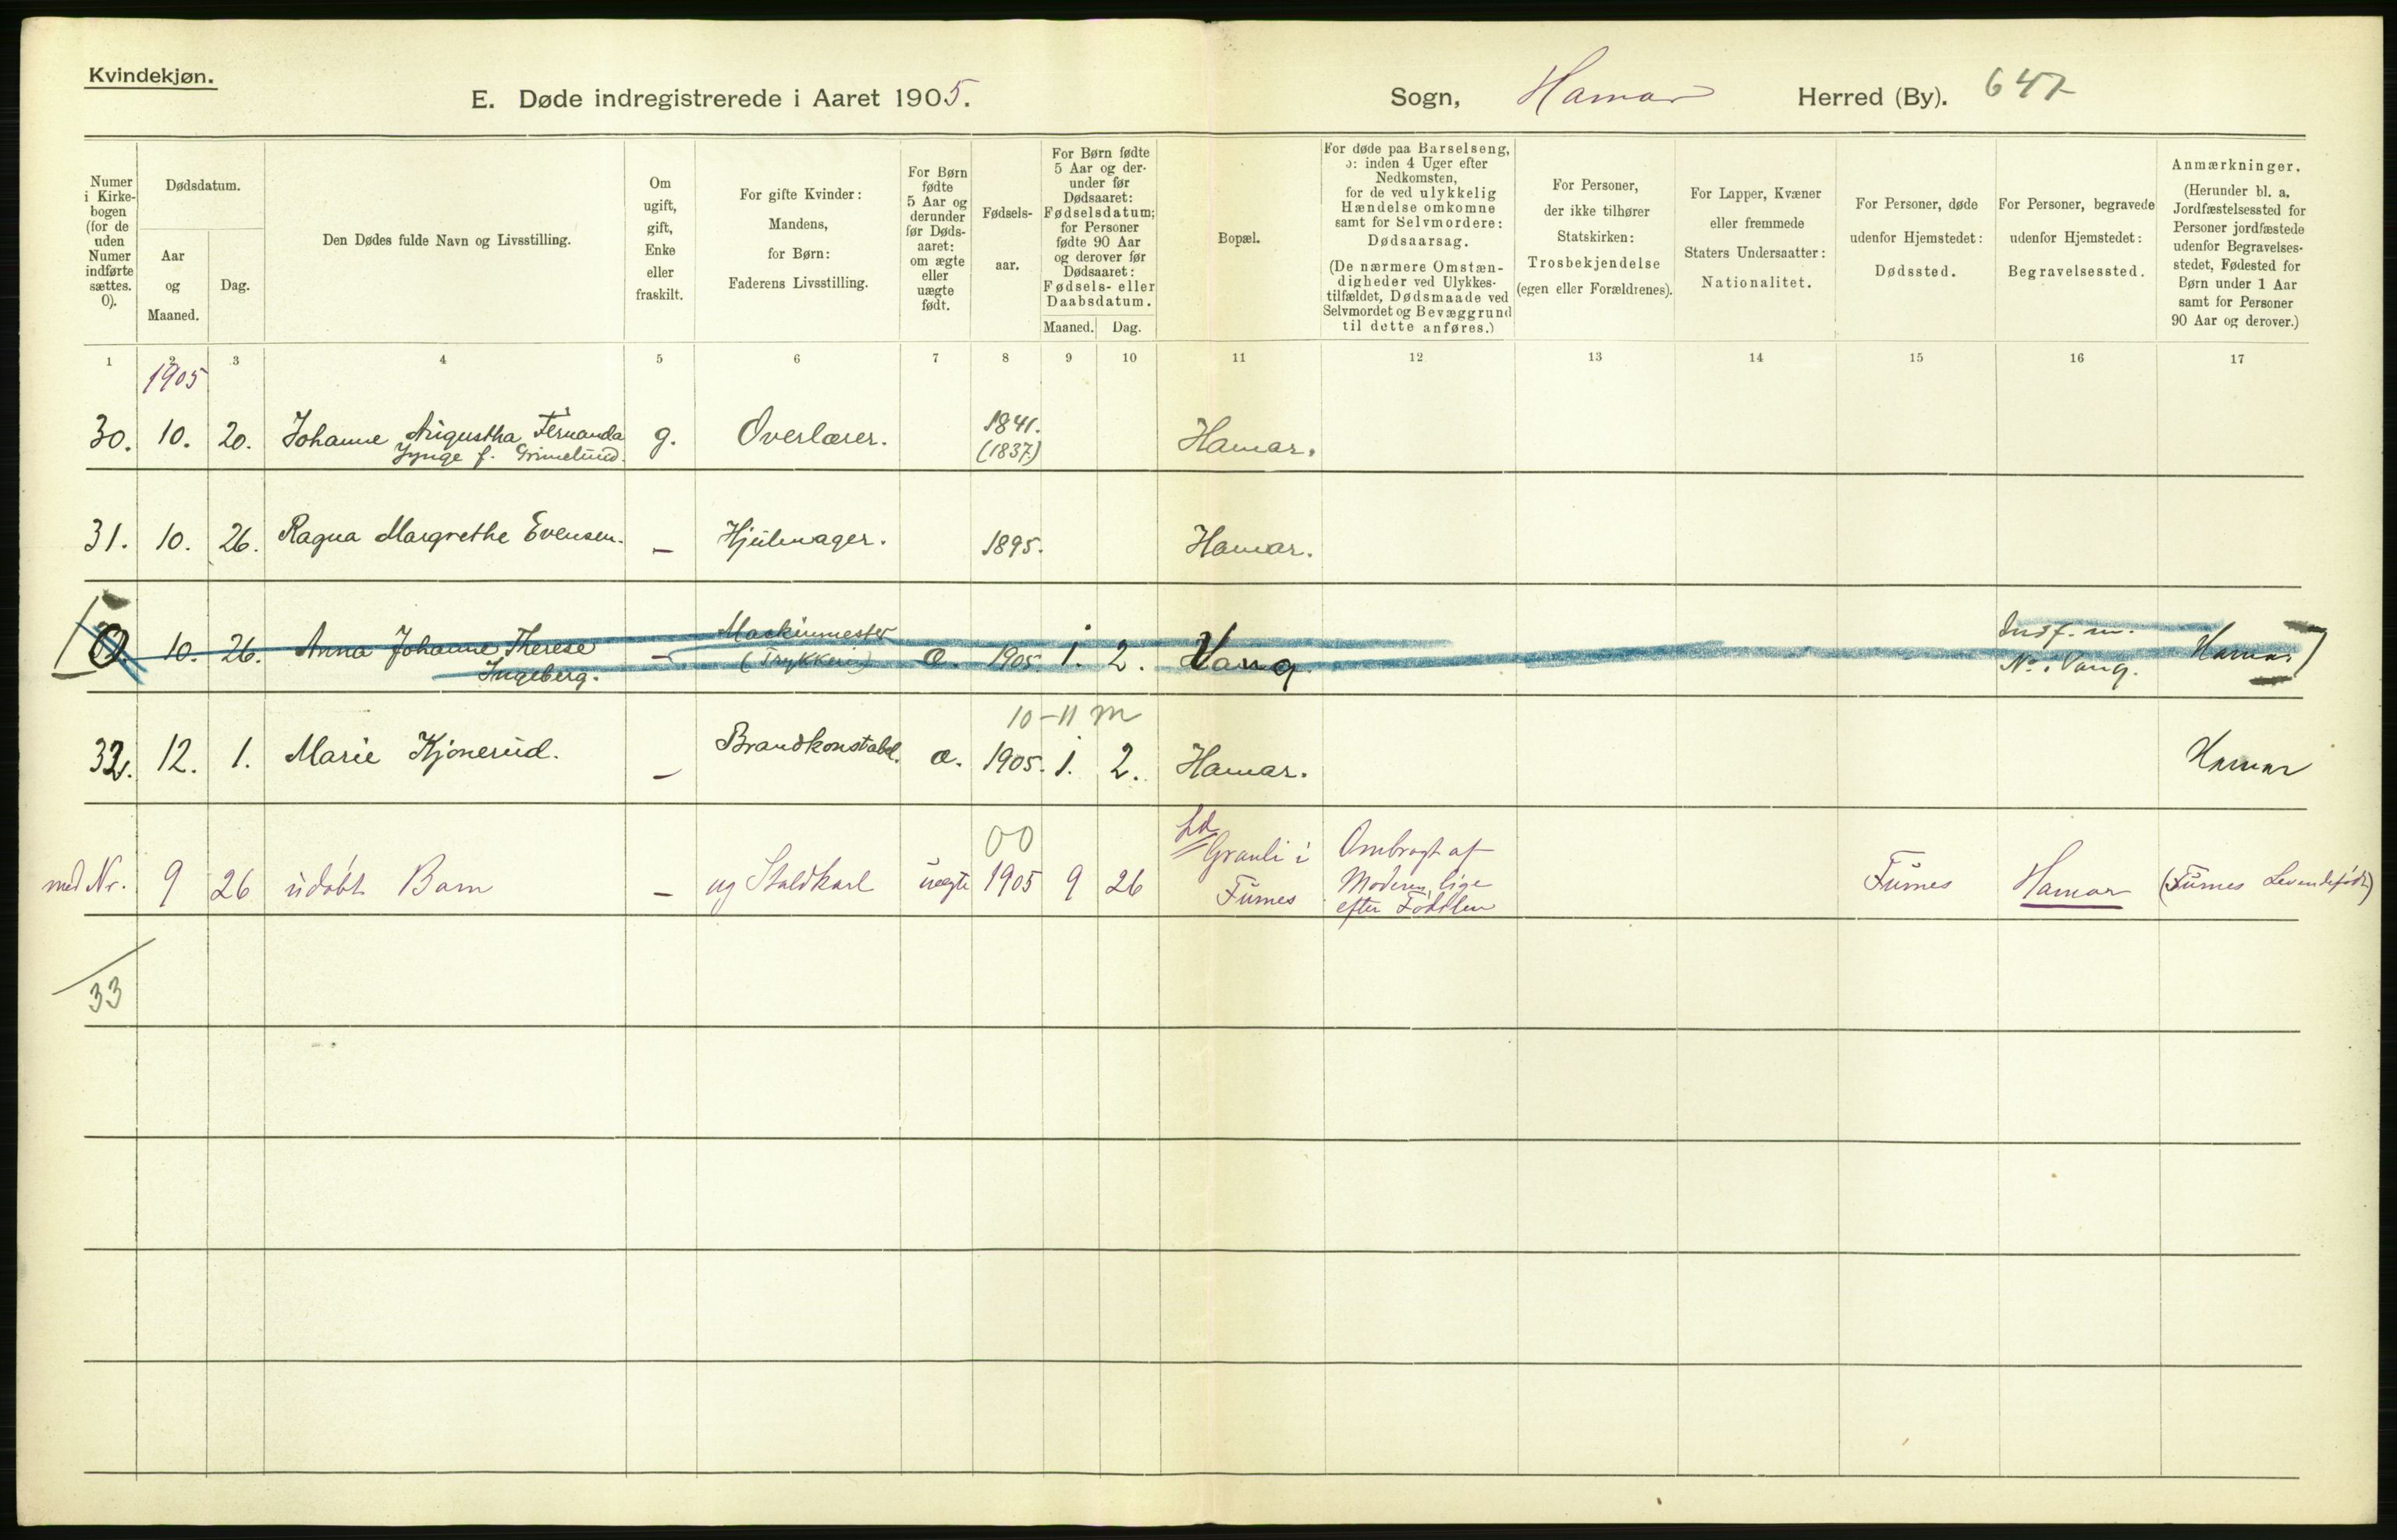 Kvindekjøn.
E. Døde indregistrerede i Aaret 1905.
Sogn, Hamar Herred (By). 647
Numer i Kirkebogen (for de uden Numer indførte sættes. 0).
Dødsdatum.
Aar og Maaned.
Dag.
Den Dødes fulde Navn og Livsstilling.
Om ugift, gift, Enke eller fraskilt.
For gifte Kvinder: Mandens, for Børn: Faderens Livsstilling.
For Børn fødte 5 Aar og derunder før Døds-aaret: om ægte eller uægte født.
Fødsels-aar.
For Børn fødte 5 Aar og der-under før Dødsaaret: Fødselsdatum; for Personer fødte 90 Aar og derover før Dødsaaret: Fødsels- eller Daabsdatum.
Maaned. Dag.
Bopæl.
For døde paa Barselseng, ɔ: inden 4 Uger efter Nedkomsten, for de ved ulykkelig Hændelse omkomne samt for Selvmordere: Dødsaarsag.
(De nærmere Omstæn-digheder ved Ulykkes-tilfældet, Dødsmaade ved Selvmordet og Bevæggrund til dette anføres.)
For Personer, der ikke tilhører Statskirken: Trosbekjendelse (egen eller Forældrenes).
For Lapper, Kvæner eller fremmede Staters Undersaatter: Nationalitet.
For Personer, døde udenfor Hjemstedet: Dødssted.
For Personer, begravede udenfor Hjemstedet: Begravelsessted.
Anmærkninger.
(Herunder bl. a. Jordfæstelsessted for Personer jordfæstede udenfor Begravelses-stedet, Fødested for Børn under 1 Aar samt for Personer 90 Aar og derover.)
1 2 3 4 5 6 7 8 9 10 11 12 13 14 15 16 17
1905
30. 10. 20. Johanne Augustha Fernanda g. Overlærer. 1841. Hamar.
Jynge f. Grimelund. (1837)
31. 10. 26. Ragna Margrethe Evensen. — Hjulmager. 1895. Hamar.
0. 10. 26. Anna Johanne Therese — Maskinmester æ. 1905. 1. 2. Vang. Hamar
Ingeberg. (Trykkeri) N. i Vang.
10-11 m
32. 12. 1. Marie Kjonerud. — Brandkonstabel. æ. 1905. 1. 2. Hamar. Hamar
00
med Nr. 9 26 udøbt Barn — ug Staldkarl uægte 1905 9 26 Granli i Furnes Ombragt af Moderen lige efter Fødslen Furnes Hamar (Furnes Levendefødt)
33